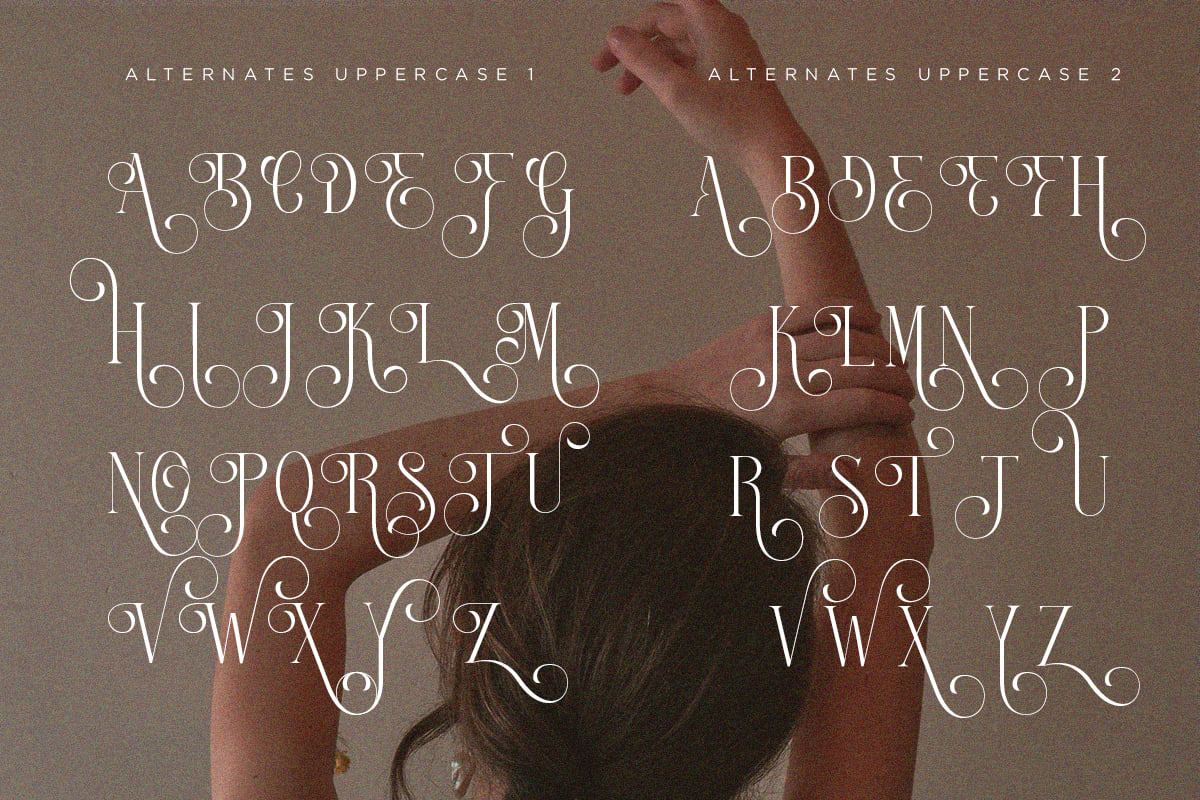 ALTERNATES UPPERCASE 1
A B C D E F G
H I J K L M
N O P Q R S T U
V W X Y Z
ALTERNATES UPPERCASE 2
A B D E E F H
K L M N P
R S T T U
V W X Y Z